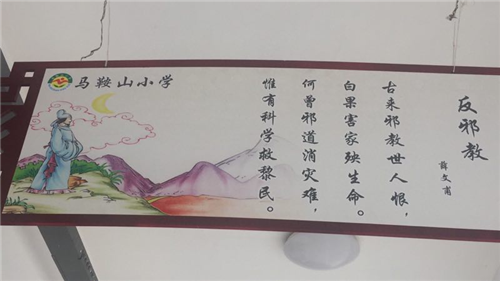 马鞍山小学
反邪教
薛文甫
古来邪教世人恨，
白果害家殃生命。
何曾邪道消灾难，
惟有科学救黎民。